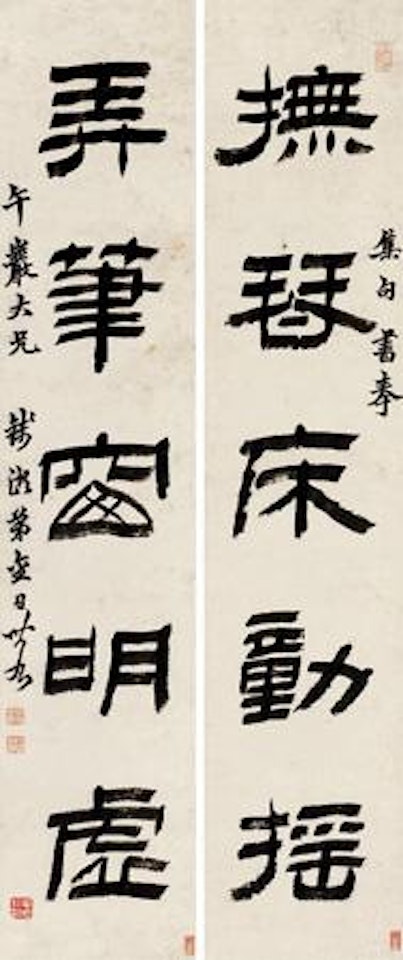 集句書奉
撫琴床動搖
弄筆窗明虛
午巖大兄
弟